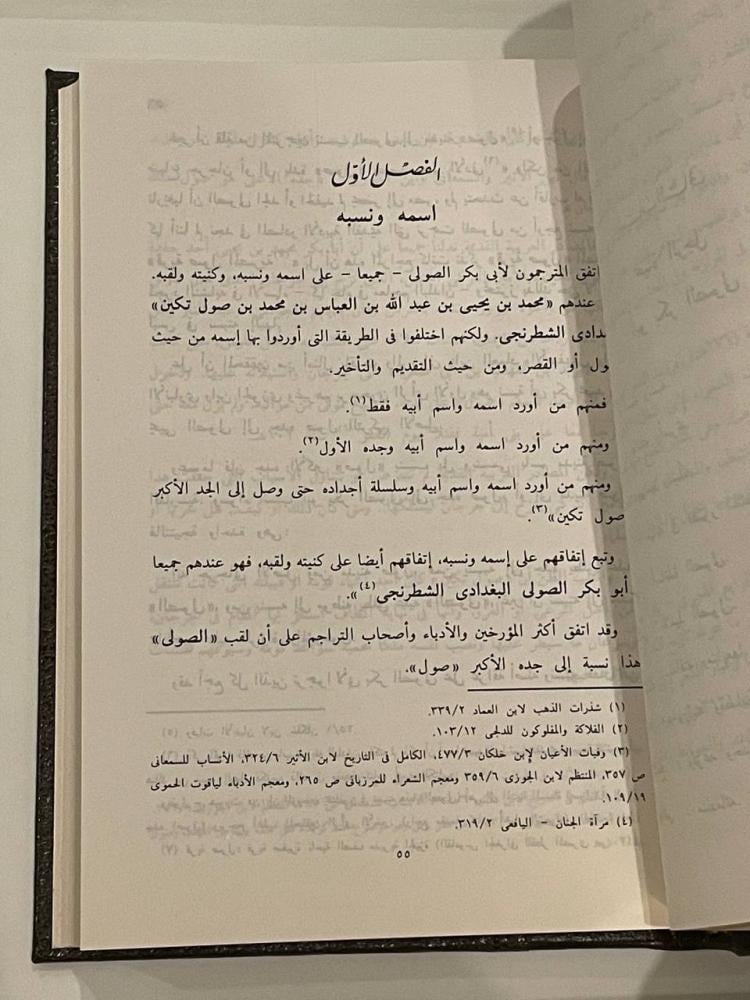 الفصل الأوّل
اسمه ونسبه
اتفق المترجمون لأبى بكر الصولى - جميعا - على اسمه ونسبه، وكنيته ولقبه.
عندهم «محمد بن يحيى بن عبد الله بن العباس بن محمد بن صول تكين»
دادى الشطرنجى. ولكنهم اختلفوا فى الطريقة التى أوردوا بها إسمه من حيث
ول أو القصر، ومن حيث التقديم والتأخير.
فمنهم من أورد اسمه واسم أبيه فقط(١).
ومنهم من أورد اسمه واسم أبيه وجده الأول(٢).
ومنهم من أورد اسمه واسم أبيه وسلسلة أجداده حتى وصل إلى الجد الأكبر
صول تكين»(٣).
وتبع إتفاقهم على إسمه ونسبه، إتفاقهم أيضا على كنيته ولقبه، فهو عندهم جميعا
أبو بكر الصولى البغدادى الشطرنجى(٤)».
وقد اتفق أكثر المؤرخين والأدباء وأصحاب التراجم على أن لقب «الصولى»
هذا نسبة إلى جده الأكبر «صول».
(١) شذرات الذهب لابن العماد ٣٣٩/٢.
(٢) الفلاكة والمفلوكون للدلجى ١٠٣/١٢.
(٣) وفيات الأعيان لإبن خلكان ٤٧٧/٣، الكامل فى التاريخ لابن الأثير ٣٢٤/٦، الأنساب للسمعانى
ص ٣٥٧، المنتظم لابن الجوزى ٣٥٩/٦ ومعجم الشعراء للمرزبانى ص ٢٦٥، ومعجم الأدباء لياقوت الحموى
١٠٩/١٩.
(٤) مرآة الجنان - اليافعى ٣١٩/٢.
٥٥